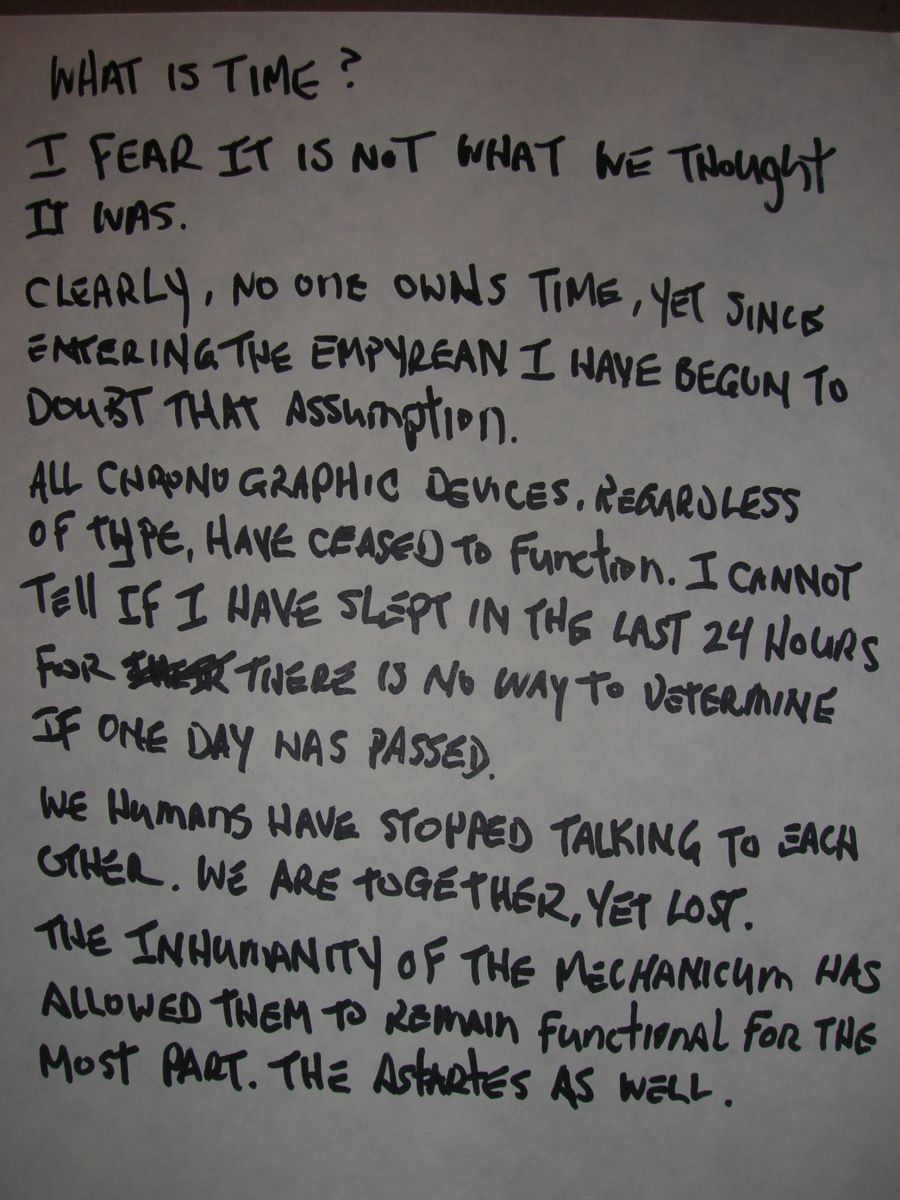 WHAT IS TIME?
I FEAR IT IS NOT WHAT WE THOUGHT
IT WAS.
CLEARLY, NO ONE OWNS TIME, YET SINCE
ENTERING THE EMPYREAN I HAVE BEGUN TO
DOUBT THAT ASSUMPTION.
ALL CHRONOGRAPHIC DEVICES, REGARDLESS
OF TYPE, HAVE CEASED TO FUNCTION. I CANNOT
TELL IF I HAVE SLEPT IN THE LAST 24 HOURS
FOR THERE IS NO WAY TO DETERMINE
IF ONE DAY HAS PASSED.
WE HUMANS HAVE STOPPED TALKING TO EACH
OTHER. WE ARE TOGETHER, YET LOST.
THE INHUMANITY OF THE MECHANICUM HAS
ALLOWED THEM TO REMAIN FUNCTIONAL FOR THE
MOST PART. THE ASTARTES AS WELL.